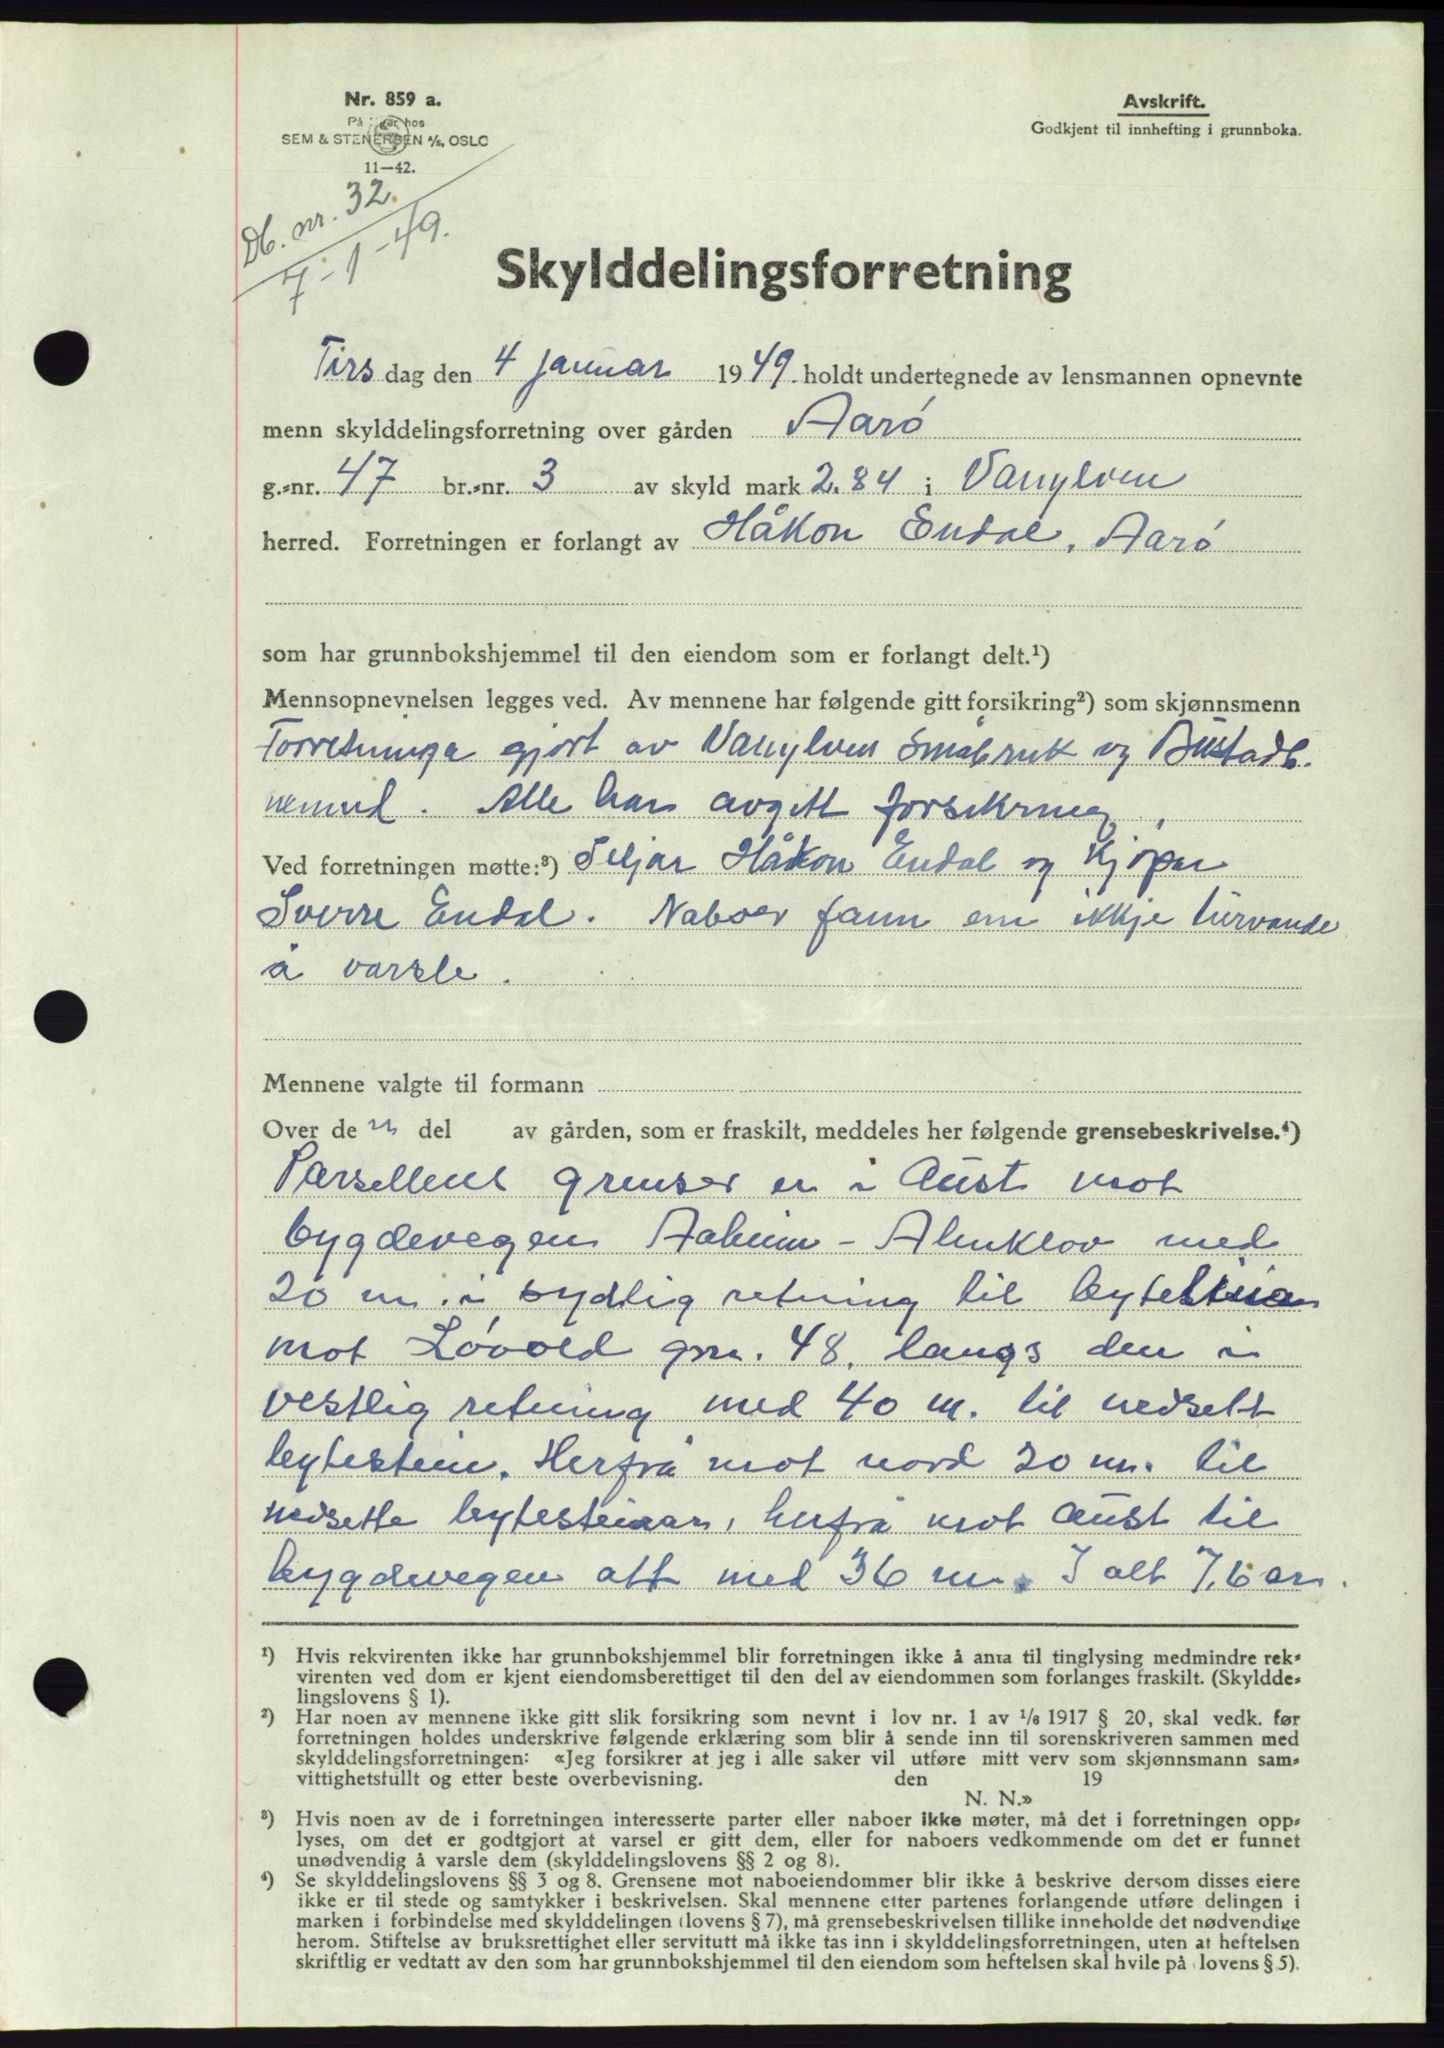 Nr. 859 a.
På lager hos
SEM & STENERSEN A/S, OSLO
11—42.
Avskrift.
Godkjent til innhefting i grunnboka.
Db. nr. 32
7-1-49.
Skylddelingsforretning
Tirsdag den 4 januar 1949. holdt undertegnede av lensmannen opnevnte
menn skylddelingsforretning over gården Aarø
g.-nr. 47 br.-nr. 3 av skyld mark 2.84 i Vanylven
herred. Forretningen er forlangt av Håkon Endal, Aarø
som har grunnbokshjemmel til den eiendom som er forlangt delt.¹)
Mennsopnevnelsen legges ved. Av mennene har følgende gitt forsikring²) som skjønnsmenn
Forretninga gjort av Vanylven Småbruk og Bustadb.
nemnd. Alle har avgitt forsikring.
Ved forretningen møtte:³) Seljar Håkon Endal og Kjøpar
Sverre Endal. Naboer fann ein ikkje turvande
å varsle.
Mennene valgte til formann
Over de n del av gården, som er fraskilt, meddeles her følgende grensebeskrivelse.⁴)
Parsellens grenser er i Aust mot
bygdevegen Aaheim - Almklov med
20 m. i sydlig retning til bytelina
mot Løvold gnr. 48, langs den i
vestlig retning med 40 m. til nedsett
bytestein. Herfrå mot nord 20 m. til
nedsette bytesteinar, herfrå mot aust til
bygdevegen att med 36 m. I alt 7,6 ar.
¹) Hvis rekvirenten ikke har grunnbokshjemmel blir forretningen ikke å anta til tinglysing medmindre rek-
virenten ved dom er kjent eiendomsberettiget til den del av eiendommen som forlanges fraskilt. (Skyldde-
lingslovens § 1).
²) Har noen av mennene ikke gitt slik forsikring som nevnt i lov nr. 1 av ¹/₆ 1917 § 20, skal vedk. før
forretningen holdes underskrive følgende erklæring som blir å sende inn til sorenskriveren sammen med
skylddelingsforretningen: «Jeg forsikrer at jeg i alle saker vil utføre mitt verv som skjønnsmann sam-
vittighetsfullt og etter beste overbevisning. den 19
N. N.»
³) Hvis noen av de i forretningen interesserte parter eller naboer ikke møter, må det i forretningen opp-
lyses, om det er godtgjort at varsel er gitt dem, eller for naboers vedkommende om det er funnet
unødvendig å varsle dem (skylddelingslovens §§ 2 og 8).
⁴) Se skylddelingslovens §§ 3 og 8. Grensene mot naboeiendommer blir ikke å beskrive dersom disses eiere
ikke er til stede og samtykker i beskrivelsen. Skal mennene etter partenes forlangende utføre delingen i
marken i forbindelse med skylddelingen (lovens § 7), må grensebeskrivelsen tillike inneholde det nødvendige
herom. Stiftelse av bruksrettighet eller servitutt må ikke tas inn i skylddelingsforretningen, uten at heftelsen
skriftlig er vedtatt av den som har grunnbokshjemmel til den eiendom som heftelsen skal hvile på (lovens § 5).